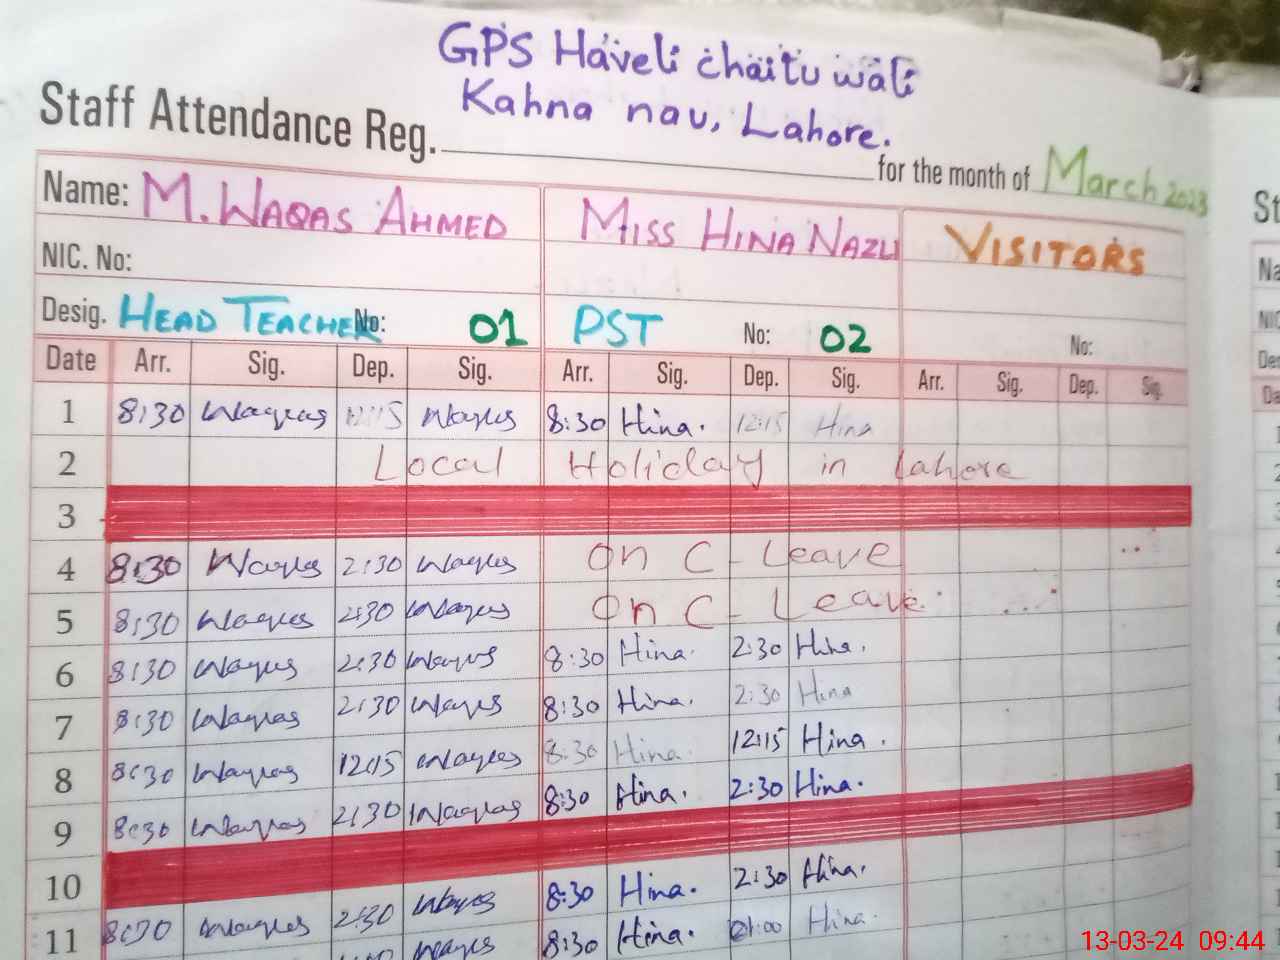 GPS Haveli chaitu wali
Kahna nau, Lahore.
Staff Attendance Reg. for the month of March 2023
Name: M. WAQAS AHMED MISS HINA NAZLI VISITORS
NIC. No:
Desig. HEAD TEACHER No: 01 PST No: 02 No:
Date Arr. Sig. Dep. Sig. Arr. Sig. Dep. Sig. Arr. Sig. Dep. Sig.
1 8:30 Waqas 12:15 Waqas 8:30 Hina. 12:15 Hina
2 Local Holiday in Lahore
3
4 8:30 Waqas 2:30 Waqas On C-Leave
5 8:30 Waqas 2:30 Waqas On C-Leave
6 8:30 Waqas 2:30 Waqas 8:30 Hina. 2:30 Hina.
7 8:30 Waqas 2:30 Waqas 8:30 Hina. 2:30 Hina
8 8:30 Waqas 12:15 Waqas 8:30 Hina. 12:15 Hina.
9 8:30 Waqas 2:30 Waqas 8:30 Hina. 2:30 Hina.
10
11 8:30 Waqas 2:30 Waqas 8:30 Hina. 2:30 Hina.
Waqas 8:30 Hina. 01:00 Hina.
St
Na
NIC
De
Da
13-03-24 09:44